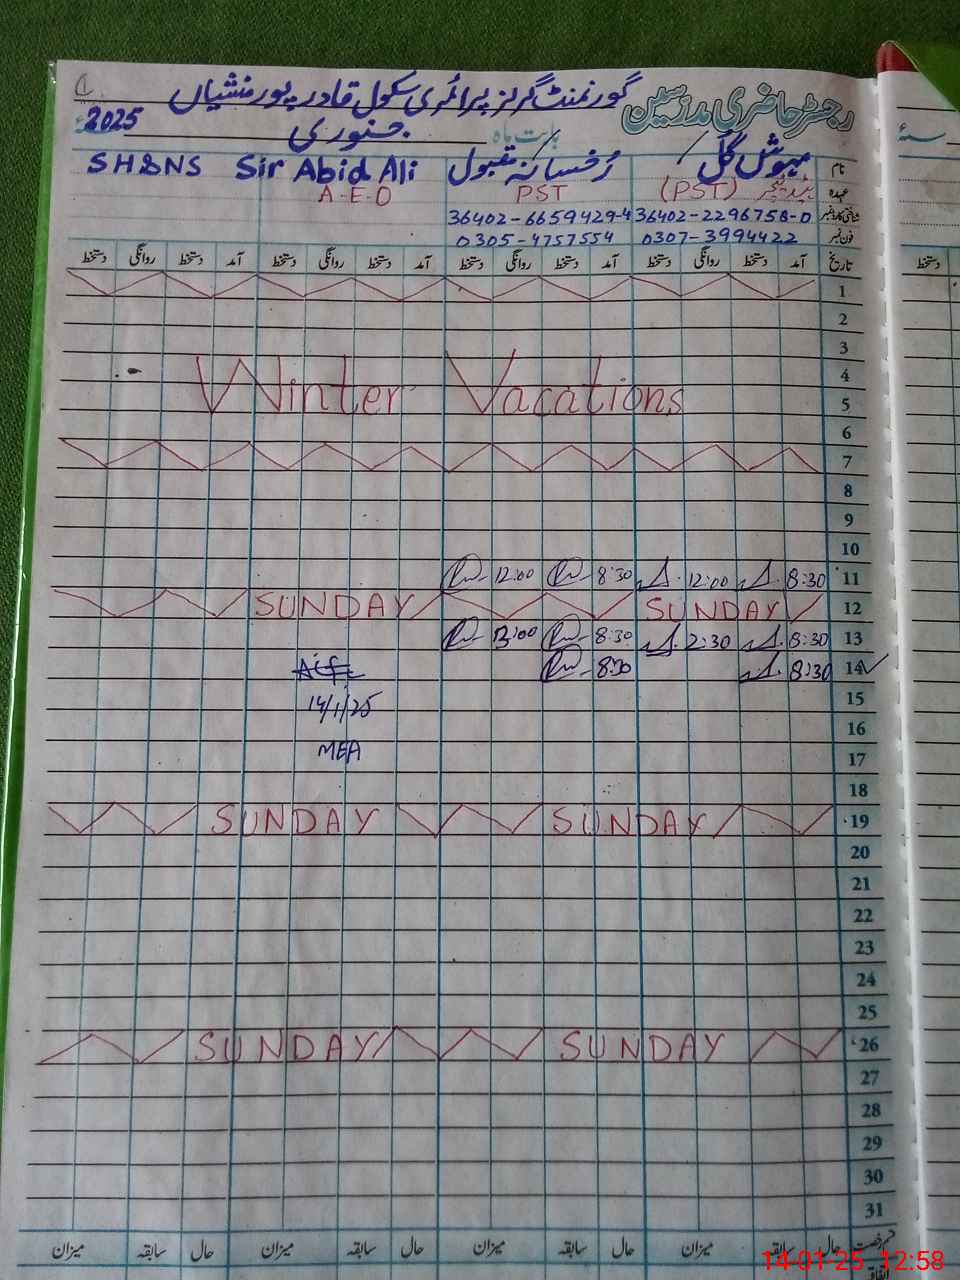 رجسٹر حاضری مدرسین گورنمنٹ گرلز پرائمری سکول قادر پور منشیاں
بابت ماہ جنوری 2025ء
نام مہوش گل رخسانہ مقبول Sir Abid Ali SH&NS
عہدہ ہیڈ ٹیچر (PST) PST A-E-O
شناختی کارڈ نمبر 36402-2296758-0 36402-6659429-4
فون نمبر 0307-3994422 0305-4757554
تاریخ آمد دستخط روانگی دستخط آمد دستخط روانگی دستخط آمد دستخط روانگی دستخط آمد دستخط روانگی دستخط
1
2
3
4
Winter Vacations
5
6
7
8
9
10
11 8:30 12:00 8:30 12:00
12 SUNDAY SUNDAY
13 8:30 2:30 8:30
14 8:30 8:30
15 14/1/25
16
17 MEA
18
19 SUNDAY SUNDAY
20
21
22
23
24
25
26 SUNDAY SUNDAY
27
28
29
30
31
رخصت حال سابقہ میزان حال سابقہ میزان حال سابقہ میزان حال سابقہ میزان
اتفاقیہ
سنہء
دستخط
14-01-25 12:58